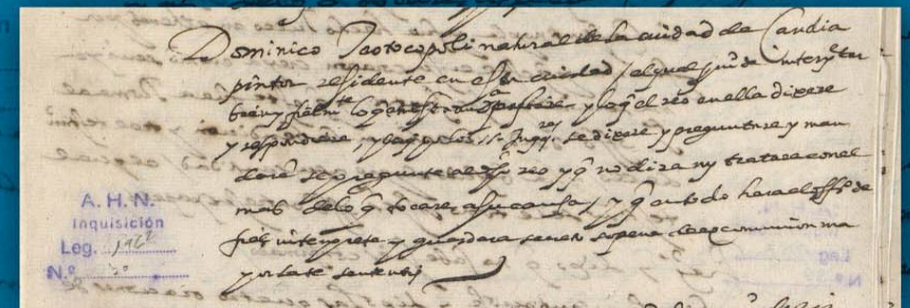 Dominico Teotocopoli natural de la ciudad de Candia
pintor residente en esta ciudad / el qual juró de interpretar
bien y fielmte lo que en esta auda pasare y lo q el reo en ella dixere
y respondiere, y lo q por los ss. Inqres se dixere y preguntare y man
daren se pregunte al dho reo y q no dira ny tratara con el
mas delo q tocare a su causa / y q en todo hara el offo de
fiel interprete y guardara secreto so pena de excomunion ma
yor late sententie
A. H. N.
Inquisición
Leg. 196
N.º